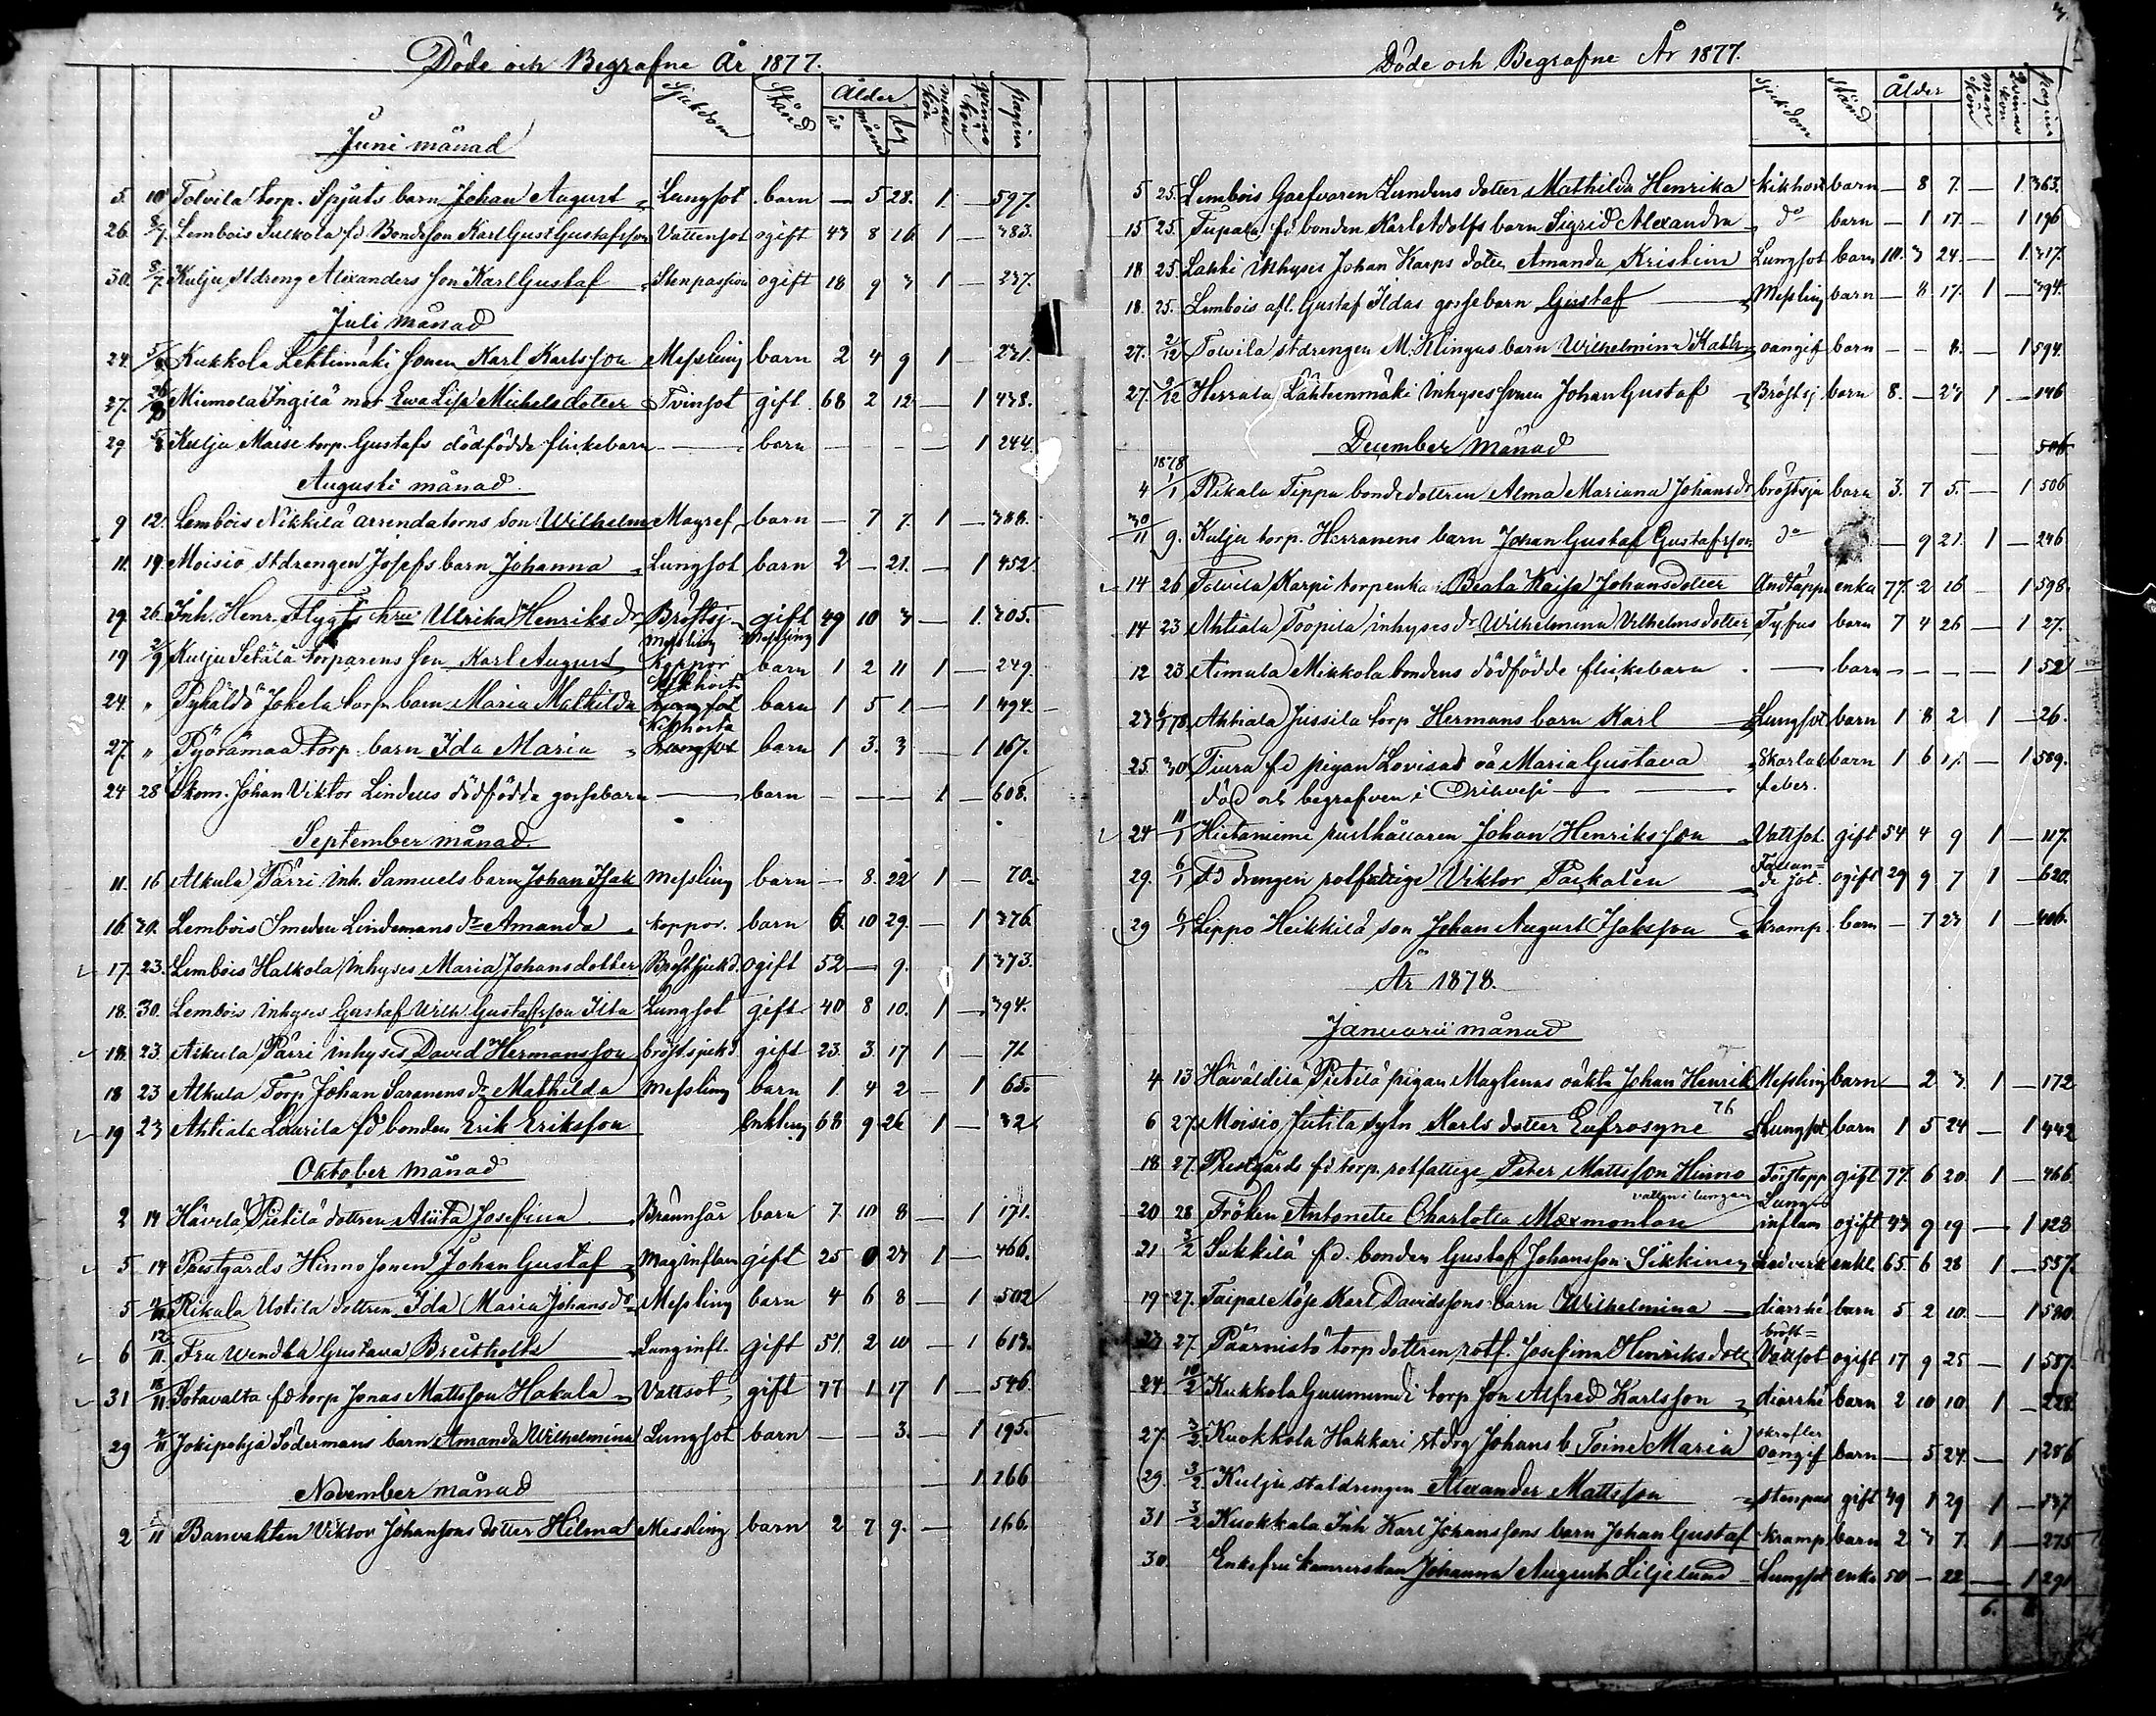 Döde och Begrafne År 1877.
Sjukdom Stånd Ålder år månd dag mankön qvinnokön pagina
Juni månad
5. 10 Tolvila torp. Spjuts barn Johan August Lungsot barn — 5 28. 1 — 597.
26. 8/7 Lembois Sulkola fd Bondeson Karl Gust Gustafsson Vattensot ogift 43 8 16 1 — 383.
30. 8/7 Kulju stdreng Alexanders son Karl Gustaf Stenpassion ogift 18 9 3 1 — 237.
Juli månad
24. Kukkola Lehtimäki sonen Karl Karlsson Messling barn 2 4 9 1 — 231.
27. Miemola Ingilä mor Ewa Lisa Michelsdotter Tvinsot gift 68 2 12 — 1 438.
29 Kulju Maise torp. Gustafs dödfödde flickebarn — barn — — — — 1 244.
Augusti månad
9 12. Lembois Nikkilä arrendatorns son Wilhelm Magref barn — 7 7. 1 — 388.
11. 19. Moisio stdrengen Josefs barn Johanna Lungsot barn 2 — 21. — 1 452
19. 26. Inh. Henr. Flygts hru Ulrika Henriksdr Bröstsj gift 49 10 3 — 1. 305.
messling messling
19 2/9 Kulju Setälä torparens son Karl August koppor barn 1 2 11 1 — 249.
kikhosta
24. " Pyhäldö Jokela torp. barn Maria Mathilda Lungsot barn 1 5 1 — 1 494.
Kikhosta
27. " Pyörämaa torp barn Ida Maria Lungsot barn 1 3. 3 — 1 167.
24 28 Skom. Johan Viktor Lindens dödfödde gossebarn — barn — — — 1 — 608.
September månad
11. 16 Alkula Pärri inh. Samuels barn Johan Isak messling barn — 8. 22 1 — 70.
16. 30. Lembois Smeden Lindemans dr Amanda koppor. barn 6. 10 29. — 1 376
17. 23. Lembois Halkola inhyses Maria Johansdotter Bröstsjukd. ogift 52 — 9. 1 373.
18. 30. Lembois inhyses Gustaf Wilh Gustafsson Ilta Lungsot gift 40 8 10. 1 — 394.
18. 23. Alkula Pärri inhyses David Hermansson bröstsjukd gift 23. 3. 17 1 — 71
18 23 Alkula Torp Johan Saranens dr Mathilda Messling barn 1. 4 2 — 1 65.
19 23 Ahtiala Laurila fd bonden Erik Eriksson Enkling 68 9 26 1 — 32
Oktober månad
2 14 Hävelä Pietilä dottren Alina Josefina Brännsår barn 7. 10 8 — 1 171.
5 14 Prestgårds Hinno sonen Johan Gustaf Mag inflam gift 25 0 23 1 — 466.
5 Rikala Uotila dottren Ida Maria Johansdr Messling barn 4 6 8 — 1 502
6 12/11. Fru Wendla Gustava Breitholtz Lunginfl. gift 51. 2 10 — 1 613.
31 18/11. Sotavalta fd torp Jonas Mattsson Hakala Vattsot gift 77 1 17 1 — 546
29 4/11 Jokipohja Södermans barn Amanda Wilhelmina Lungsot barn — — 3. — 1 195.
— 1 166
November månad
2 /11 Banvakten Viktor Johanssons dotter Hilma Messling barn 2 7 9. — 166.
Döde och Begrafne År 1877.
Sjukdom Stånd Ålder man kön Qvinno kön pagina
5 25. Lembois Garfvaren Lundens dotter Mathilda Henrika kikhost barn — 8 7. — 1 363.
15 25. Tupala fd bonden Karl Adolfs barn Sigrid Alexandra do barn — 1 17. — 1 196
18 25. Lahti inhyses Johan Karps dotter Amanda Kristina Lungsot barn 10. 3 24. — 1 317.
18. 25. Lembois afl. Gustaf Ildas gossebarn Gustaf Messling barn — 8 17. 1 — 394.
27. 2/12 Tolvila stdrengen M. Klingas barn Wilhelmina Kath. oangif barn — — 8. — 1 594.
27. 2/12 Herrala Lähteenmäki inhyses sonen Johan Gustaf Bröstsj barn 8. — 23 1 — 146
December månad 506
1878
4 1/1 Rikala Tippa bondedottren Alma Mariana Johansdr bröstsju barn 3. 7 5. — 1 506
30/11 9. Kulju torp. Herranens barn Johan Gustaf Gustafsson do — 9 21. 1 — 246
14 26 Tolvila Karpi torpenka Beata Kaisa Johansdotter Andtäppa enka 77. 2 16 — 1 598.
14 23 Ahtiala Toopila inhyses dr Wilhelmina Vilhelmsdotter Tyfus barn 7 4 26 — 1 27.
12 23. Aimala Mikkola bondens dödfödde flickebarn — barn — — — — 1 52
23 Ahtiala Jussila torp Hermans barn Karl Lungsot barn 1 8 2 1 — 26.
25. 30 Tiura fd pigan Lovisas oä Maria Gustava Skarlak barn 1 6 17. — 1 589.
död och begrafven i Orihvesi feber.
24 11/1 Hietaniemi rusthållaren Johan Henriksson Vattsot. gift 54 4 9 1 — 117.
29. 6/1 Fd drengen rotfattige Viktor Packalen ogift 29 9 7 1 — 620.
29 6/1 Lippo Heikkilä son Johan August Isaksson kramp. barn — 7 23 1 — 406.
År 1878.
Januarii månad
4 13 Häväldilä Pietilä pigan Maglenas oäkta Johan Henrik Messling barn — 2 3. 1 — 172
6 27. Moisio Jutila sytn Karls dotter Eufrosyne 76 Lungsot barn 1 5 24 — 1 442
18 27. Prestgårds fd torp. rotfattige Peter Mattsson Hinno Törstopp gift 77. 6 20. 1 — 466
vatten i lungan
20 28 Fröken Antonette Charlotta Mexmontan Lung inflam ogift 43 9 19 — 1 123
21 3/2 Sukkilä fd. bonden Gustaf Johansson Sikkinen Ledverk enkl. 65. 6 28 1 — 537.
19 27. Taipale löje Karl Davidssons barn Wilhelmina diarrhé barn 5 2 10. — 1 580.
bröst=
23 27. Päärnistö torp dottren rotf. Josefina Henriksdott Vattsot ogift 17 9 25 — 1 587.
24. 10/2 Kukkola Gunnundi torp son Alfred Karlsson diarrhé barn 2 10 10. 1 — 228.
skrofler
27. 3/2. Kuokkola Hakkari st drg Johans b. Toine Maria oangif barn — 5 24. — 1 286
29. 3/2 Kulju staldrengen Alexander Mattsson stenpas gift 49 1 29 1 — 137
31 3/2 Kuokkala Inh Karl Johanssons barn Johan Gustaf kramp barn 2 3 7. 1 — 275
30. Enkefru kamrerskan Johanna Augusta Liljelund Lungsot enka 50 — 22 — 1 291
6.